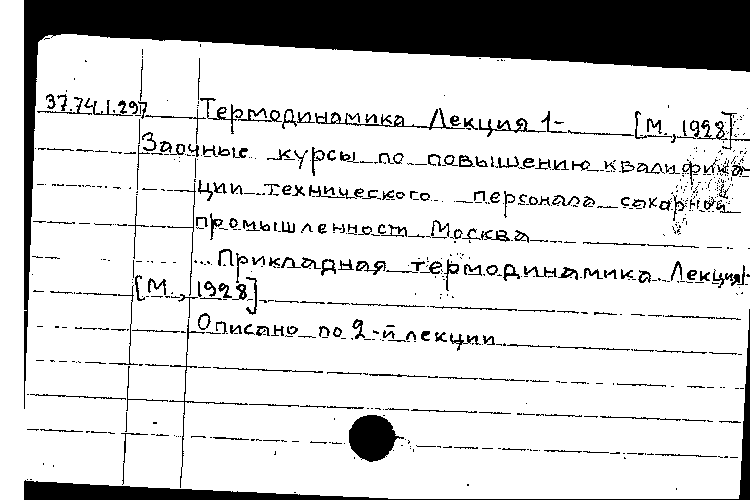 37.74.1.297 Термодинамика. Лекция 1- [М., 1928]
Заочные курсы по повышению квалифика-
ции технического персонала сахарной
промышленности Москва
... Прикладная термодинамика. Лекция 1-
[М., 1928].
Описано по 2-й лекции